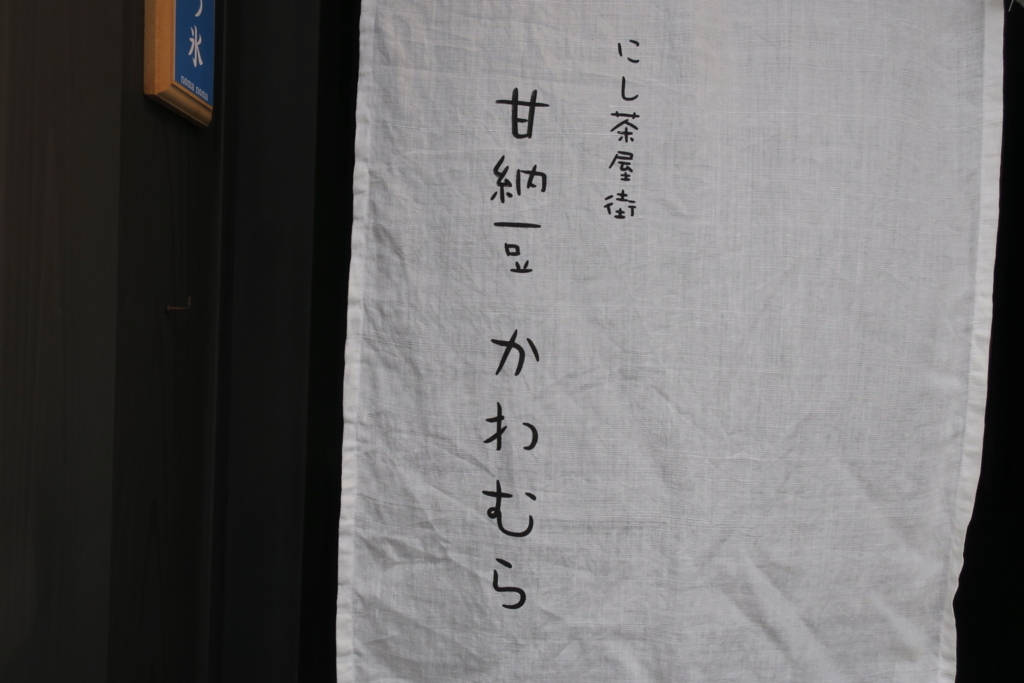 にし茶屋街
甘納豆 かわむら
氷